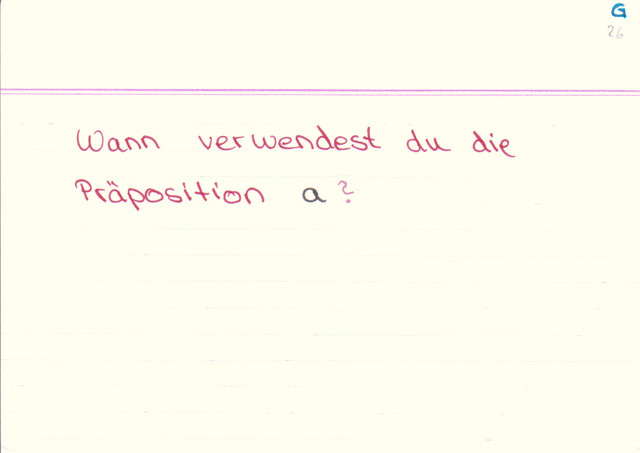 G
26
Wann verwendest du die
Präposition a?